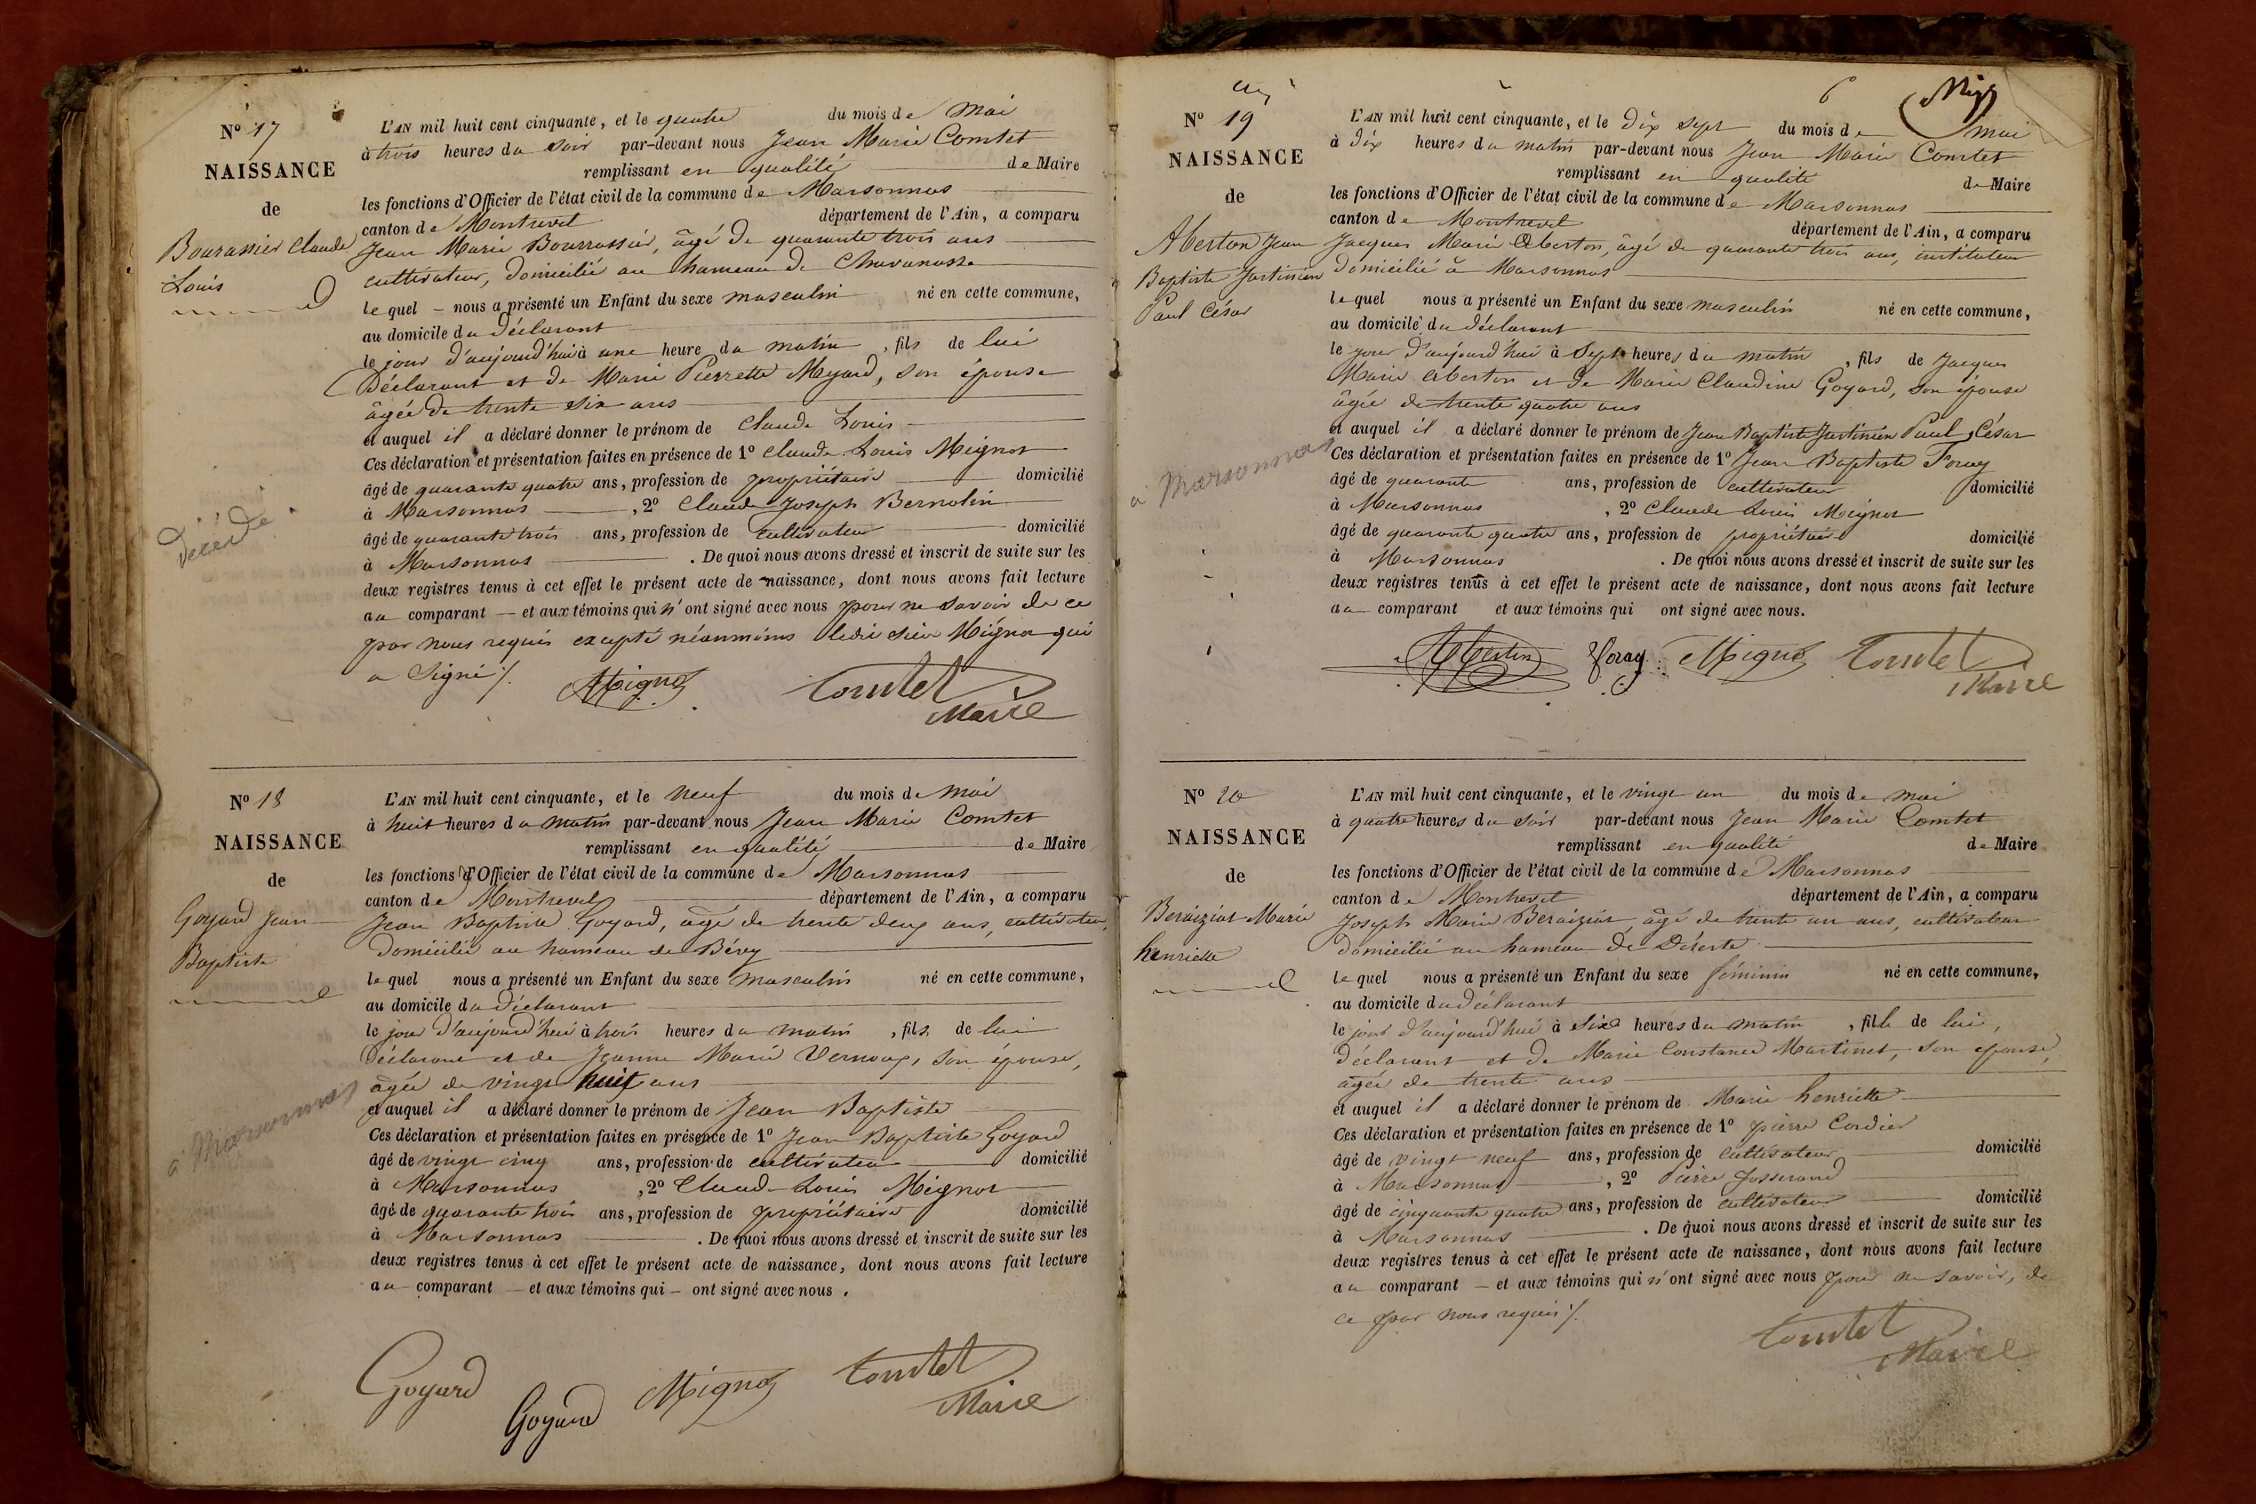 N° 17
NAISSANCE
de
Bourassier Claude
Louis
décédé
L'AN mil huit cent cinquante, et le quatre du mois de Mai
à trois heures du soir par-devant nous Jean Marie Comtet
remplissant en qualité de Maire
les fonctions d'Officier de l'état civil de la commune de Marsonnas
canton de Montrevel département de l'Ain, a comparu
Jean Marie Bourrassier, âgé de quarante trois ans
cultivateur, domicilié au hameau de Chavanosse
lequel nous a présenté un Enfant du sexe masculin né en cette commune,
au domicile du déclarant
le jour d'aujourd'hui à une heure du matin, fils de lui
Déclarant et de Marie Pierrette Meyard, son épouse
âgée de trente six ans
et auquel il a déclaré donner le prénom de Claude Louis
Ces déclaration et présentation faites en présence de 1° Claude Louis Mignot
âgé de quarante quatre ans, profession de propriétaire domicilié
à Marsonnas, 2° Claude Joseph Bernolin
âgé de quarante trois ans, profession de cultivateur domicilié
à Marsonnas. De quoi nous avons dressé et inscrit de suite sur les
deux registres tenus à cet effet le présent acte de naissance, dont nous avons fait lecture
au comparant — et aux témoins qui n'ont signé avec nous pour ne savoir de ce
par nous requis excepté néanmoins ledit sieur Mignot qui
a signé ./.
Mignot Comtet
Maire
N° 18
NAISSANCE
de
Goyard Jean
Baptiste
à Marsonnas
L'AN mil huit cent cinquante, et le neuf du mois de Mai
à huit heures du matin par-devant nous Jean Marie Comtet
remplissant en qualité de Maire
les fonctions d'Officier de l'état civil de la commune de Marsonnas
canton de Montrevel département de l'Ain, a comparu
Jean Baptiste Goyard, âgé de trente deux ans, cultivateur,
domicilié au hameau de Bévy
lequel nous a présenté un Enfant du sexe masculin né en cette commune,
au domicile du déclarant
le jour d'aujourd'hui à trois heures du matin, fils de lui
Déclarant et de Jeanne Marie Vernoux, son épouse,
âgée de vingt huit ans
et auquel il a déclaré donner le prénom de Jean Baptiste
Ces déclaration et présentation faites en présence de 1° Jean Baptiste Goyard
âgé de vingt cinq ans, profession de cultivateur domicilié
à Marsonnas, 2° Claude Louis Mignot
âgé de quarante trois ans, profession de propriétaire domicilié
à Marsonnas. De quoi nous avons dressé et inscrit de suite sur les
deux registres tenus à cet effet le présent acte de naissance, dont nous avons fait lecture
au comparant — et aux témoins qui — ont signé avec nous.
Goyard Goyard Mignot Comtet
Maire
6
N° 19
NAISSANCE
de
Aberton Jean
Baptiste Justinien
Paul César
à Marsonnas
L'AN mil huit cent cinquante, et le dix sept du mois de mai
à dix heures du matin par-devant nous Jean Marie Comtet
remplissant en qualité de Maire
les fonctions d'Officier de l'état civil de la commune de Marsonnas
canton de Montrevel département de l'Ain, a comparu
Jacques Marie Aberton, âgé de quarante trois ans, instituteur
domicilié à Marsonnas
lequel nous a présenté un Enfant du sexe masculin né en cette commune,
au domicile du déclarant
le jour d'aujourd'hui à sept heures du matin, fils de Jacques
Marie Aberton et de Marie Claudine Goyard, son épouse
âgée de trente quatre ans
et auquel il a déclaré donner le prénom de Jean Baptiste Justinien Paul César
Ces déclaration et présentation faites en présence de 1° Jean Baptiste Foray
âgé de quarante ans, profession de cultivateur domicilié
à Marsonnas, 2° Claude Louis Mignot
âgé de quarante quatre ans, profession de propriétaire domicilié
à Marsonnas. De quoi nous avons dressé et inscrit de suite sur les
deux registres tenus à cet effet le présent acte de naissance, dont nous avons fait lecture
au comparant et aux témoins qui ont signé avec nous.
Aberton Foray Mignot Comtet
Maire
N° 20
NAISSANCE
de
Beraiziat Marie
henriette
L'AN mil huit cent cinquante, et le vingt un du mois de mai
à quatre heures du soir par-devant nous Jean Marie Comtet
remplissant en qualité de Maire
les fonctions d'Officier de l'état civil de la commune de Marsonnas
canton de Montrevel département de l'Ain, a comparu
Joseph Marie Beraiziat, âgé de trente un ans, cultivateur
domicilié au hameau de
lequel nous a présenté un Enfant du sexe féminin né en cette commune,
au domicile du déclarant
le jour d'aujourd'hui à six heures du matin, fille de lui,
déclarant et de Marie Constance Martinet, son épouse,
âgée de trente ans
et auquel il a déclaré donner le prénom de Marie henriette
Ces déclaration et présentation faites en présence de 1° pierre Cordier
âgé de vingt neuf ans, profession de cultivateur domicilié
à Marsonnas, 2° Pierre Josserand
âgé de cinquante quatre ans, profession de cultivateur domicilié
à Marsonnas. De quoi nous avons dressé et inscrit de suite sur les
deux registres tenus à cet effet le présent acte de naissance, dont nous avons fait lecture
au comparant — et aux témoins qui n'ont signé avec nous pour ne savoir, de
ce par nous requis ./.
Comtet
Maire